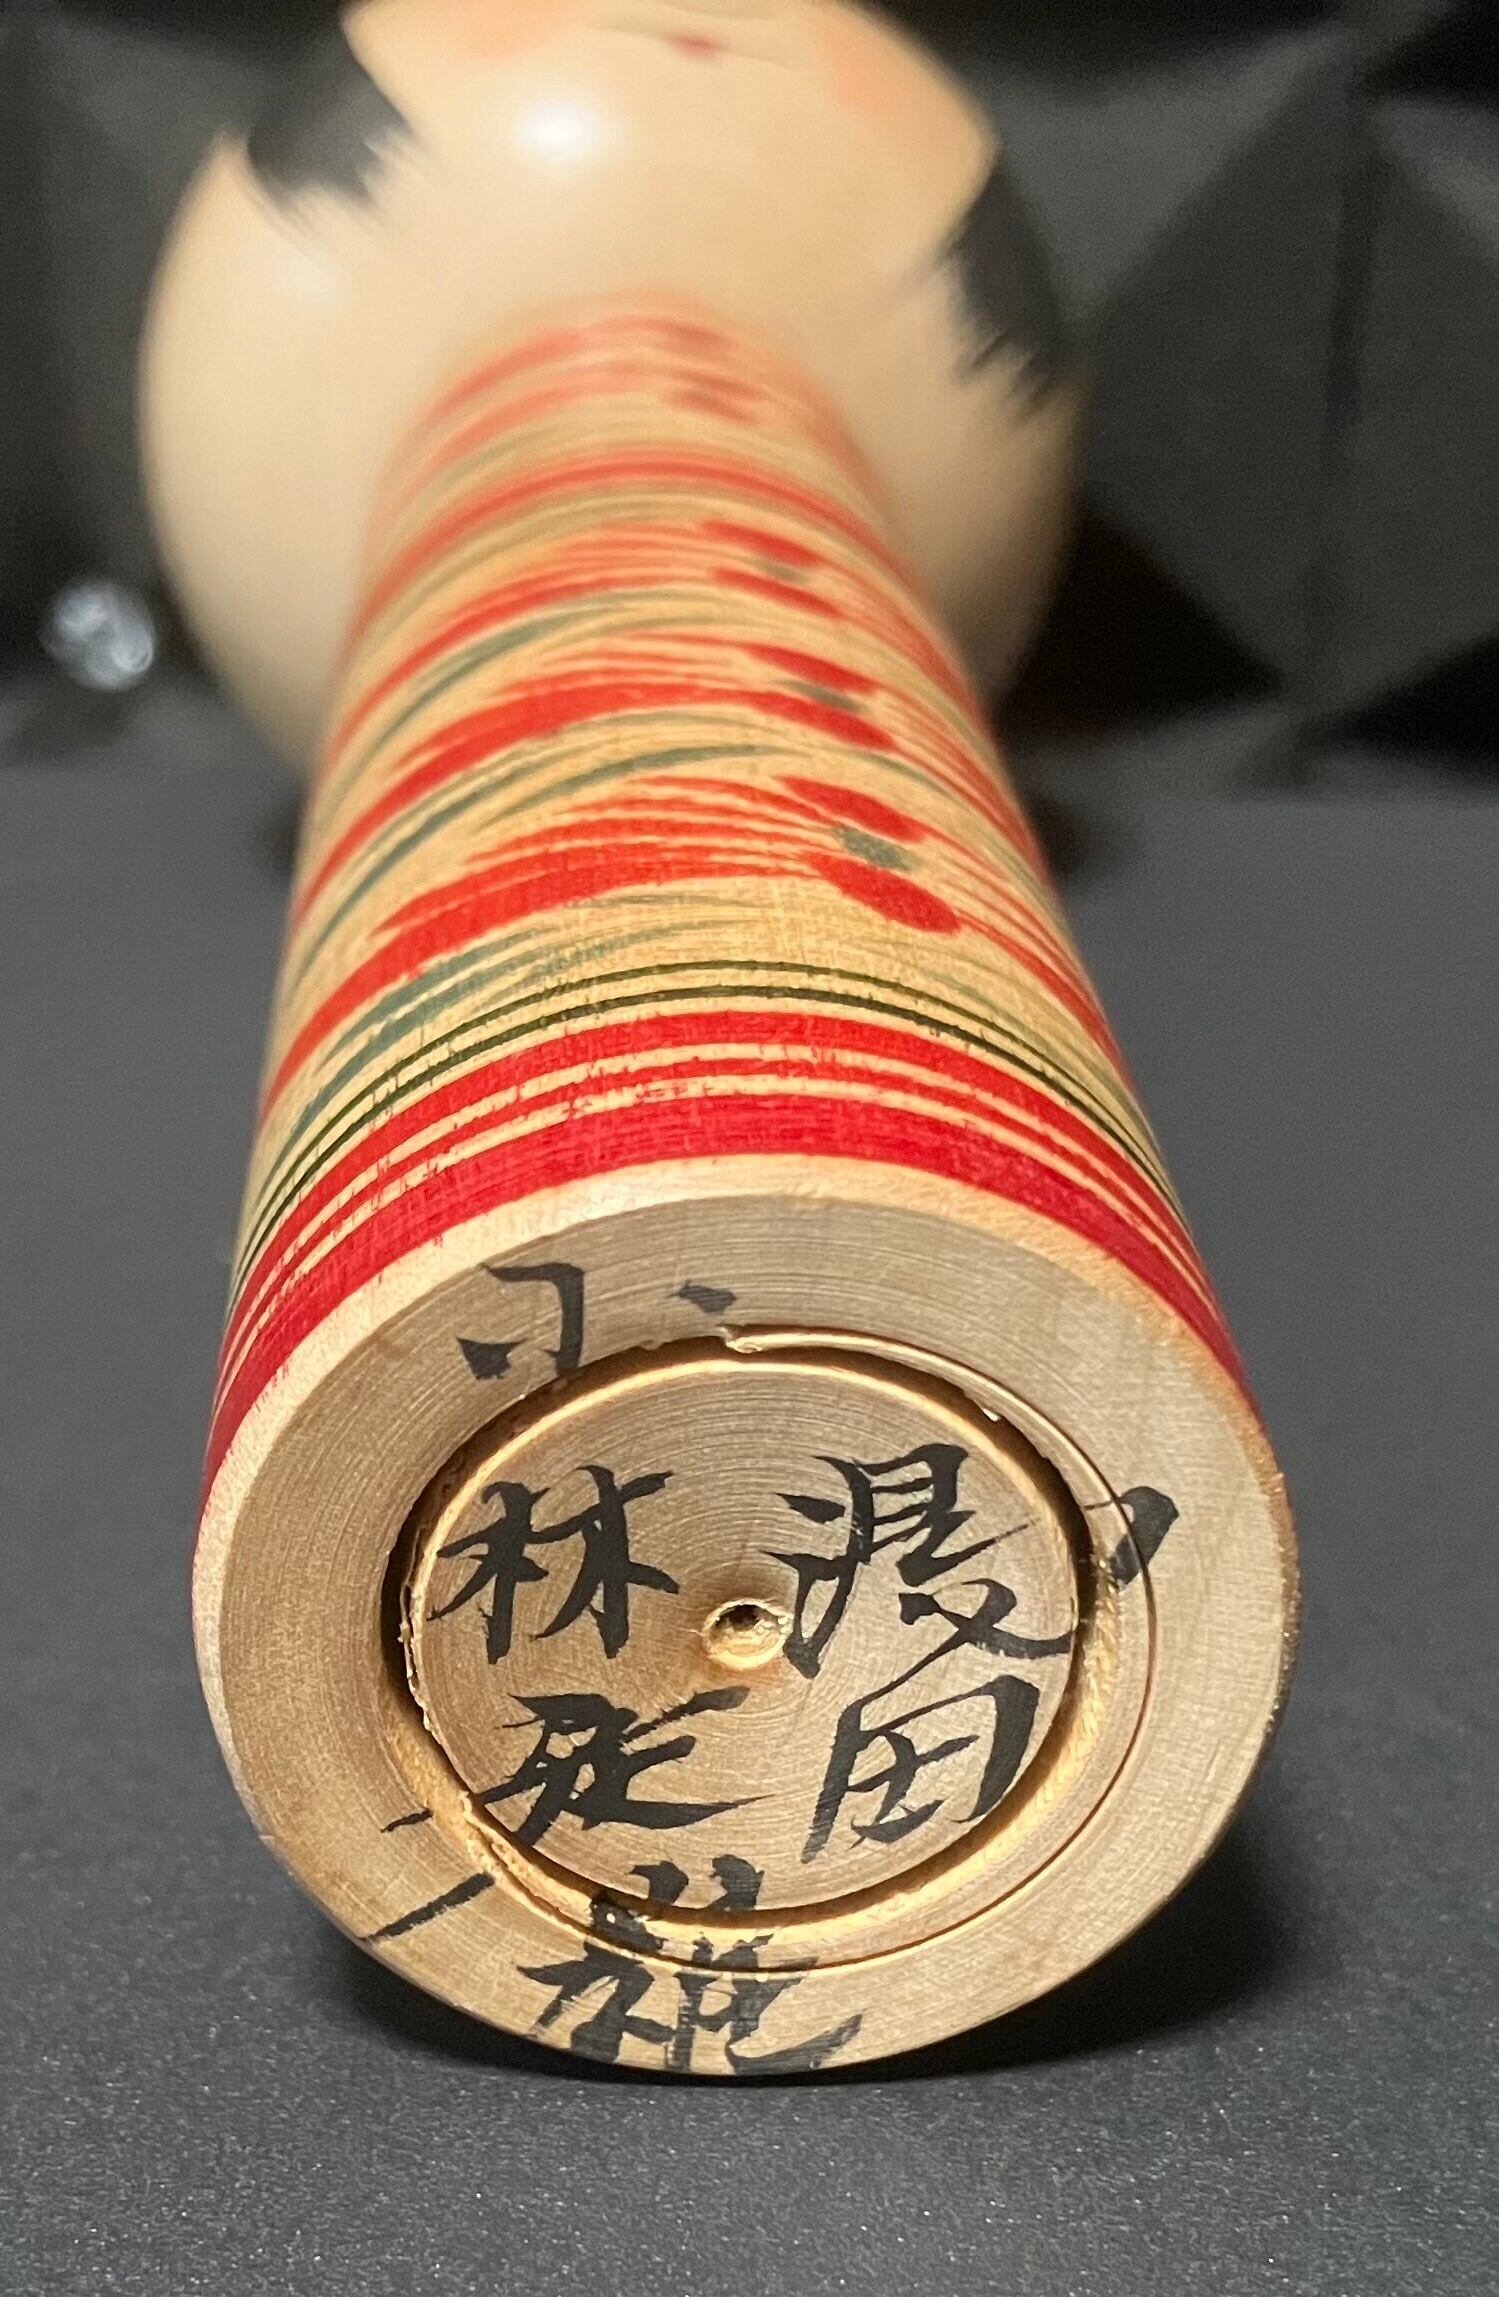 湯田
小林定雄